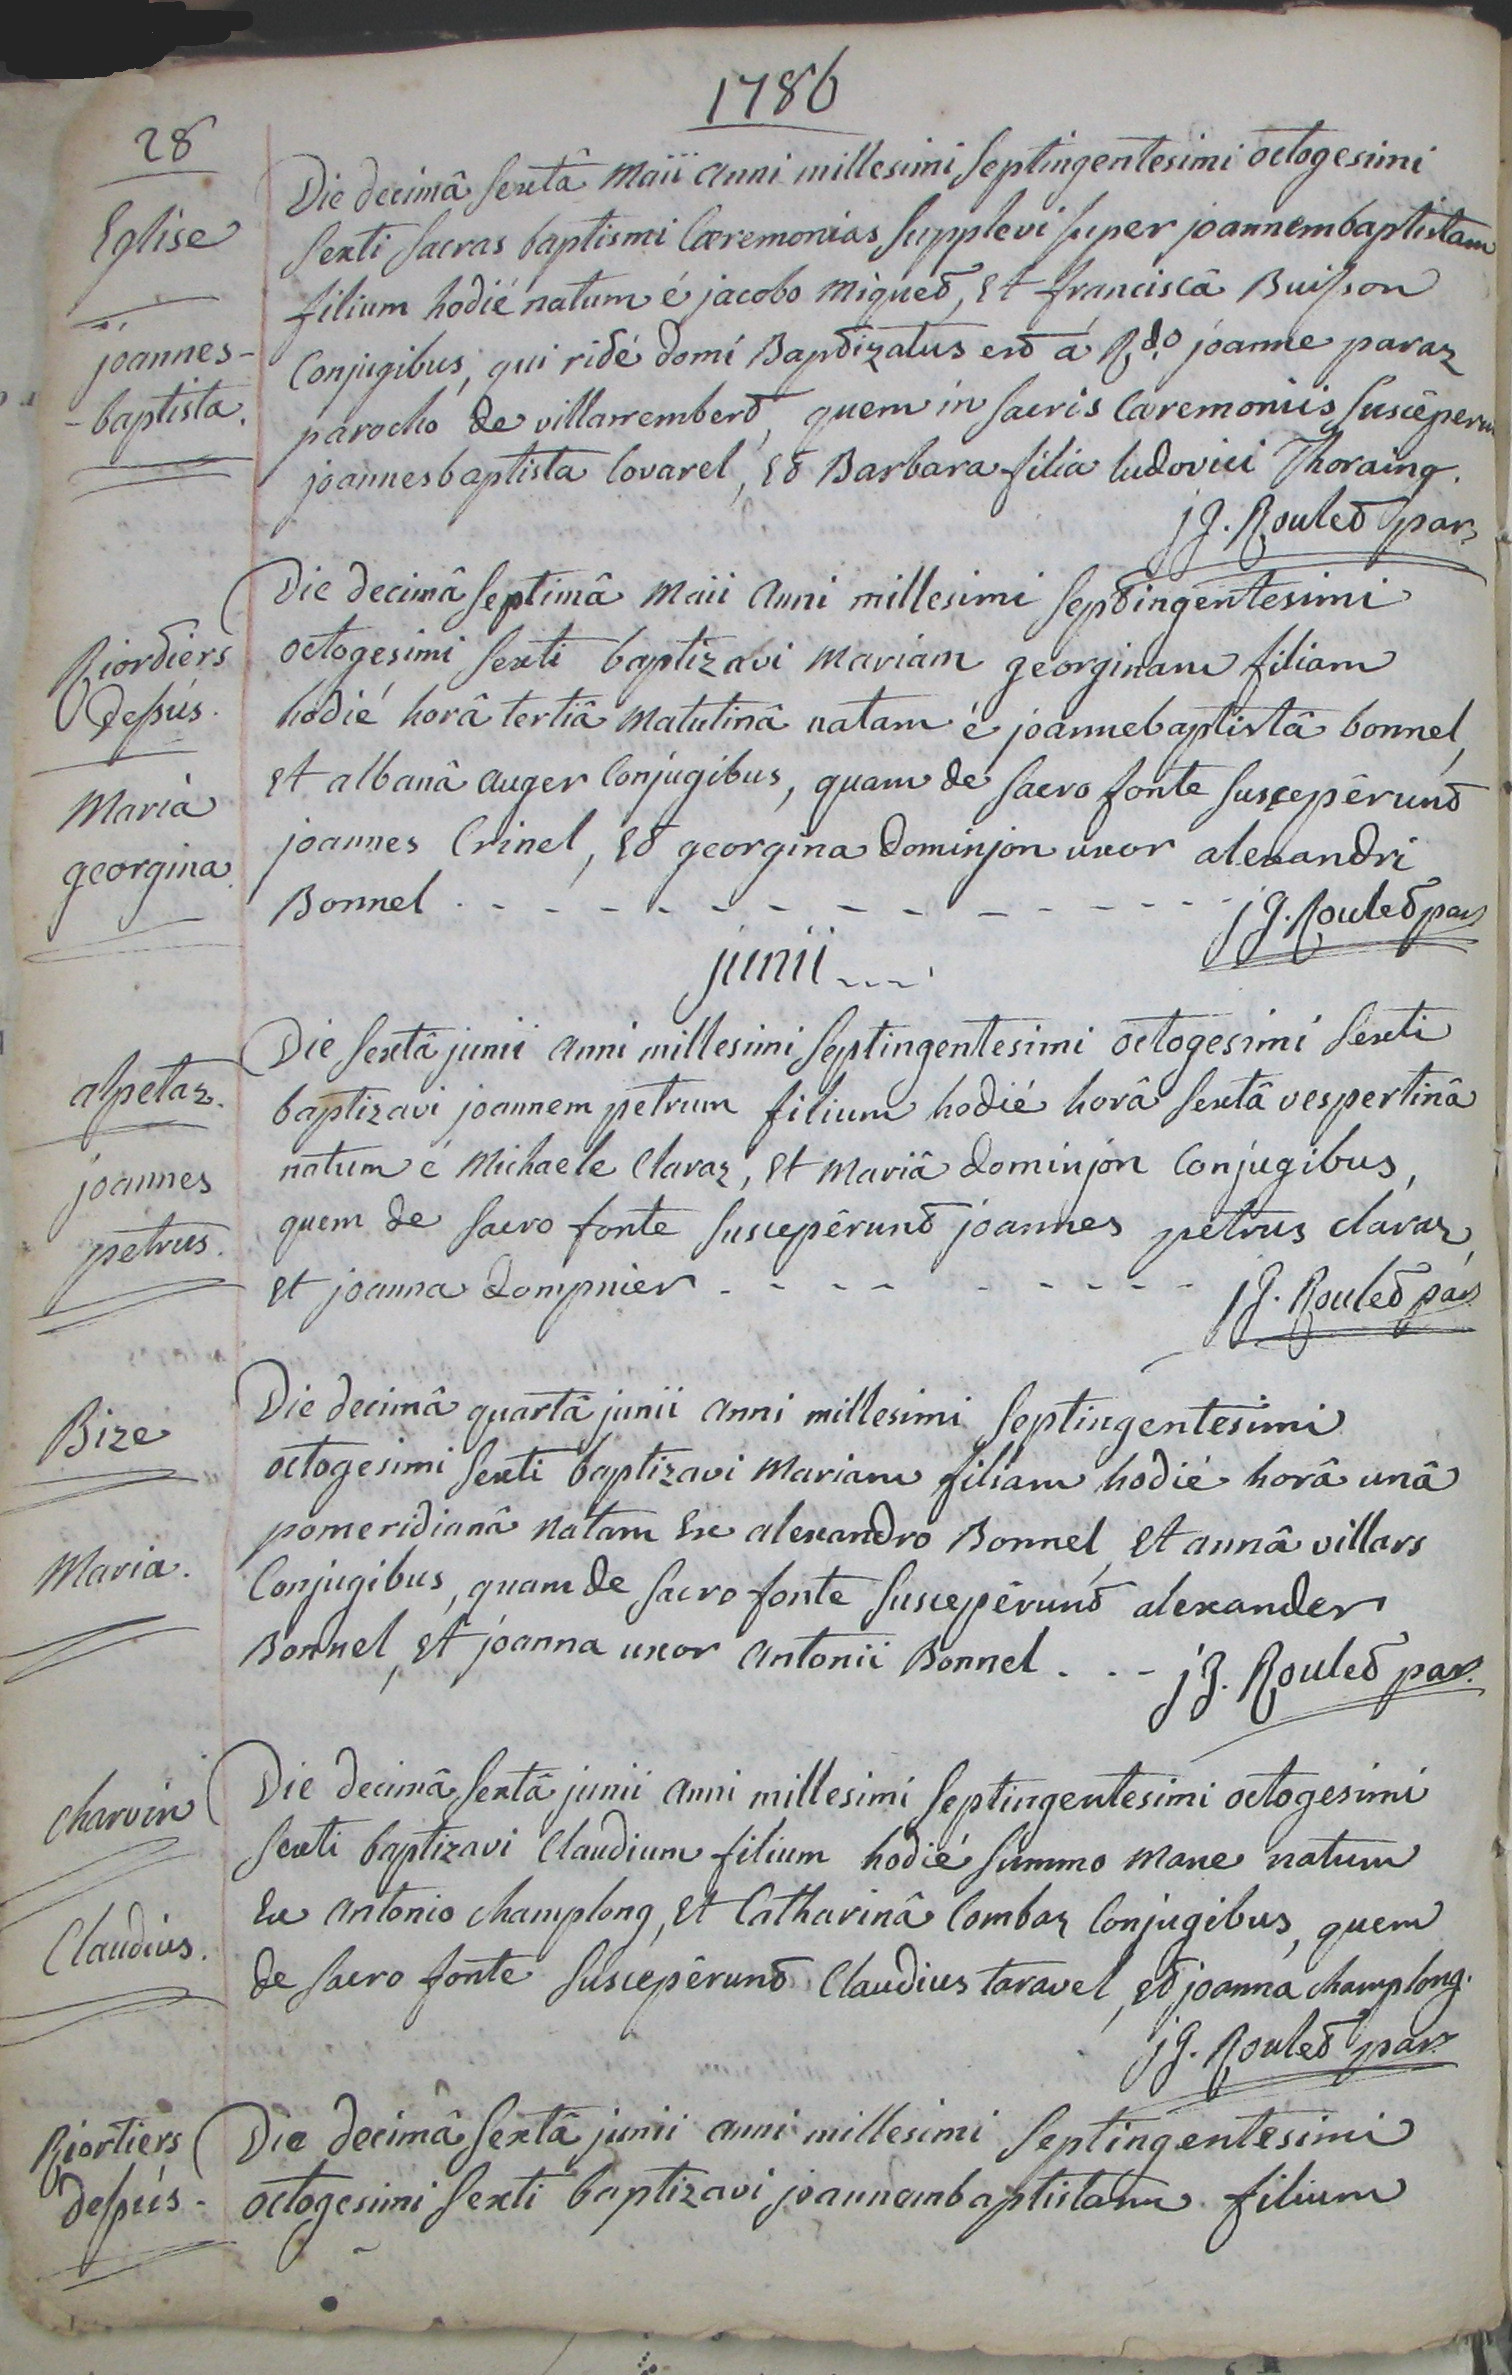 1786
28
Eglise
joannes-
-baptista.
Die decimâ sextâ maii anni millesimi septingentesimi octogesimi
sexti sacras baptismi Cæremonias supplevi super joannembaptistam
filium hodié natum é jacobo miquet, et franciscâ Buisson
Conjugibus, qui rité domi Baptizatus est á Rdo joanne paraz
parocho de villarrembert, quem in sacris Cæremoniis suscêperu
joannesbaptista Covarel, et Barbara filia ludovici Thoraing.
j J. Roulet par.
Riortiers
dessus.
Maria
georgina
Die decimâ septimâ maii anni millesimi septingentesimi
octogesimi sexti baptizavi mariam georginam filiam
hodié horâ tertiâ matutinâ natam é joannebaptistâ bonnel,
et albanâ auger Conjugibus, quam de sacro fonte suscepêrunt
joannes Crinel, et georgina dominjon uxor alexandri
Bonnel - - - - - - - - - - - - - j J. Roulet par
junii - - -
alpetaz.
joannes
petrus.
Die sextâ junii anni millesimi septingentesimi octogesimi sexti
baptizavi joannem petrum filium hodié horâ sextâ vespertinâ
natum é Michaele Claraz, et mariâ dominjon Conjugibus,
quem de sacro fonte suscepêrunt joannes petrus claraz,
et joanna dompnier - - - - - - - - - j J. Roulet par
Bize
Maria.
Die decimâ quartâ junii anni millesimi septingentesimi
octogesimi sexti baptizavi Mariam filiam hodié horâ unâ
pomeridianâ natam Ex alexandro Bonnel, et annâ villars
Conjugibus, quam de sacro fonte suscepêrunt alexander
Bonnel, et joanna uxor antonii Bonnel . . - j J. Roulet par.
charvin
Claudius.
Die decimâ sextâ junii anni millesimi septingentesimi octogesimi
sexti baptizavi Claudium filium hodié summo mane natum
Ex antonio champlong, et Catharinâ Combaz Conjugibus, quem
de sacro fonte suscepêrunt Claudius taravel, et joanna champlong.
j J. Roulet par.
Riortiers
dessus -
Die decimâ sextâ junii anni millesimi septingentesimi
octogesimi sexti baptizavi joannembaptistam filium